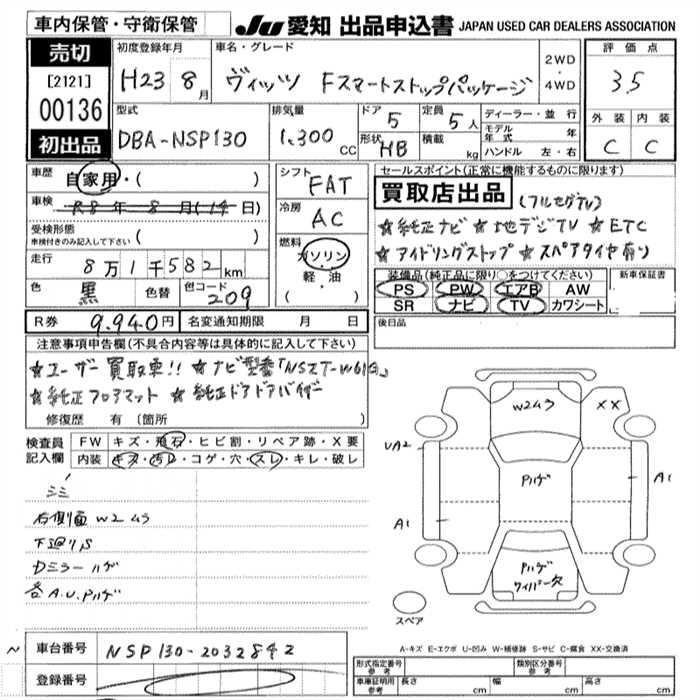 車内保管・守衛保管
JU 愛知 出品申込書 JAPAN USED CAR DEALERS ASSOCIATION
売切
[2121]
00136
初出品
初度登録年月
H23 8月
車名・グレード
ヴィッツ Fスマートストップパッケージ
2WD
・
4WD
評価点
3.5
外装 内装
C C
型式
DBA-NSP130
排気量
1.300 cc
ドア 5
定員 5人
形状 HB
積載 kg
ディーラー・並行
モデル年式 年
ハンドル 左・右
車歴 自家用・( )
車検 R8年8月(14日)
受検形態
車検付きのみ記入して下さい ( )
走行 8万1千582km
色 黒 色替 色コード 209
シフト FAT
冷房 AC
燃料 ガソリン
・
軽・油
( )
セールスポイント(正常に機能するものに限ります)
買取店出品 (フルセグTV)
☆純正ナビ ☆地デジTV ☆ETC
☆アイドリングストップ ☆スペアタイヤ有り
装備品(純正品に限り○をつけてください)
PS PW エアB AW
SR ナビ TV カワシート
新車保証書
後日品
R券 9.940円 名変通知期限 月 日
注意事項申告欄(不具合内容等は具体的に記入して下さい)
☆ユーザー買取車!! ☆ナビ型番「NSZT-W61G」
☆純正フロアマット ☆純正ドアバイザー
修復歴 有 〔箇所 〕
検査員記入欄
FW キズ・飛石・ヒビ割・リペア跡・X要
内装 キズ・汚れ・コゲ・穴・スレ・キレ・破レ
右側面W2ムラ
下廻りS
Dミラーハゲ
各A.U.Pハゲ
W2ムラ
XX
UA2
Pハゲ
A1
A1
Pハゲ
ワイパー欠
スペア
A-キズ E-エクボ U-凹み W-補修跡 S-サビ C-腐食 XX-交換済
車台番号 NSP130-2032842
登録番号
形式指定番号
参考
類別区分番号
参考
車庫証明用
参考
長さ cm 幅 cm 高さ cm